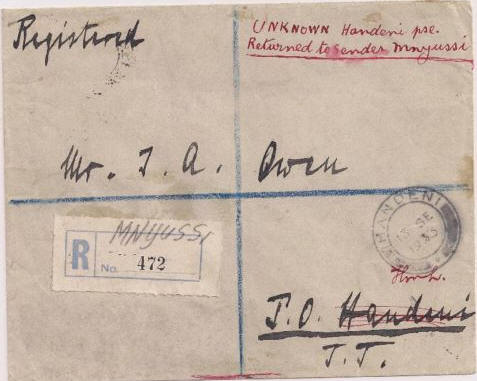 Registered
UNKNOWN Handeni pse.
Returned to sender Mnyussi
Mr. J. A. Owen
MNYUSSI
R No. 472
HANDENI
SE
P.O. Handeni
T.T.